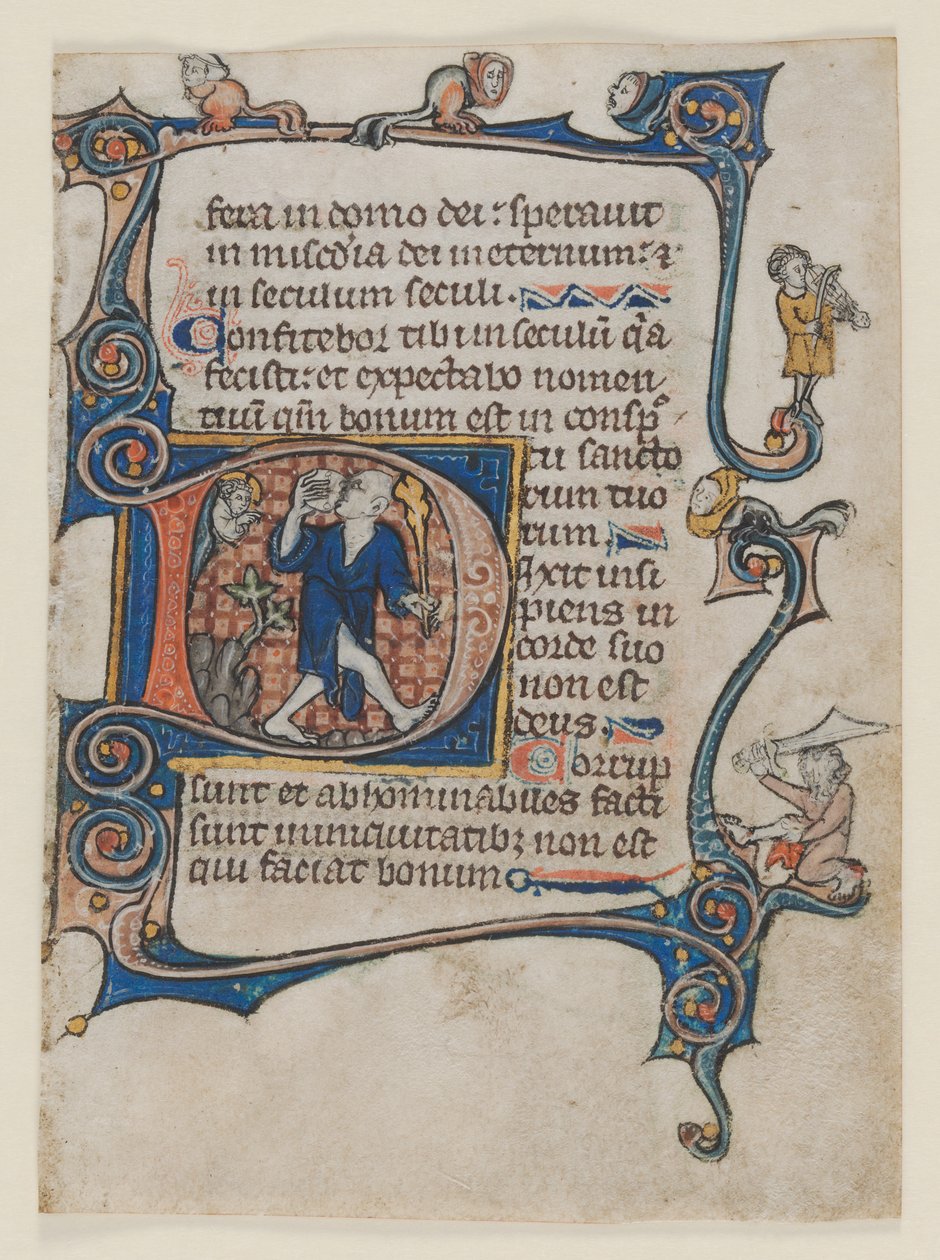 fera in domo dei : speravit
in mis̄cdia dei in eternum : ⁊
in seculum seculi .
Confitebor tibi in seculū q̄a
fecisti : et expectabo nomen
tuū qm̄ bonum est in consp̄
ctu sancto
rum tuo
rum .
Dixit insi
piens in
corde suo
non est
deus .
Corrup
sunt et abhominabiles facti
sunt in iniquitatibꝫ non est
qui faciat bonum